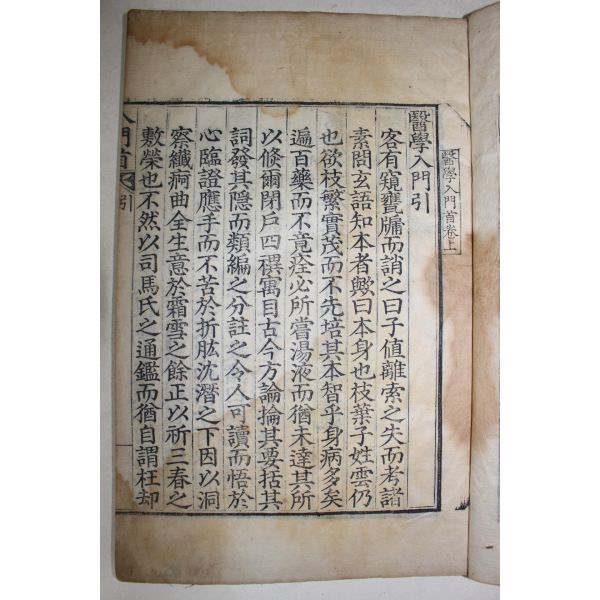 醫學入門首卷上一
醫學入門引
客有窺甕牖而誚之曰子值離索之失而考諸
素問玄語知本者歟曰本身也枝葉子姓雲仍
也欲枝繁實茂而不先培其本智乎身病多矣
遍百藥而不竟痊必所嘗湯液而猶未達其所
以倏爾閉戶四禩寓目古今方論掄其要括其
詞發其隱而類編之分註之令人可讀而悟於
心臨證應手而不苦於折肱沈潛之下因以洞
察纖痾曲全生意於霜雪之餘正以祈三春之
敷榮也不然以司馬氏之通鑑而猶自謂枉却
入門首 引